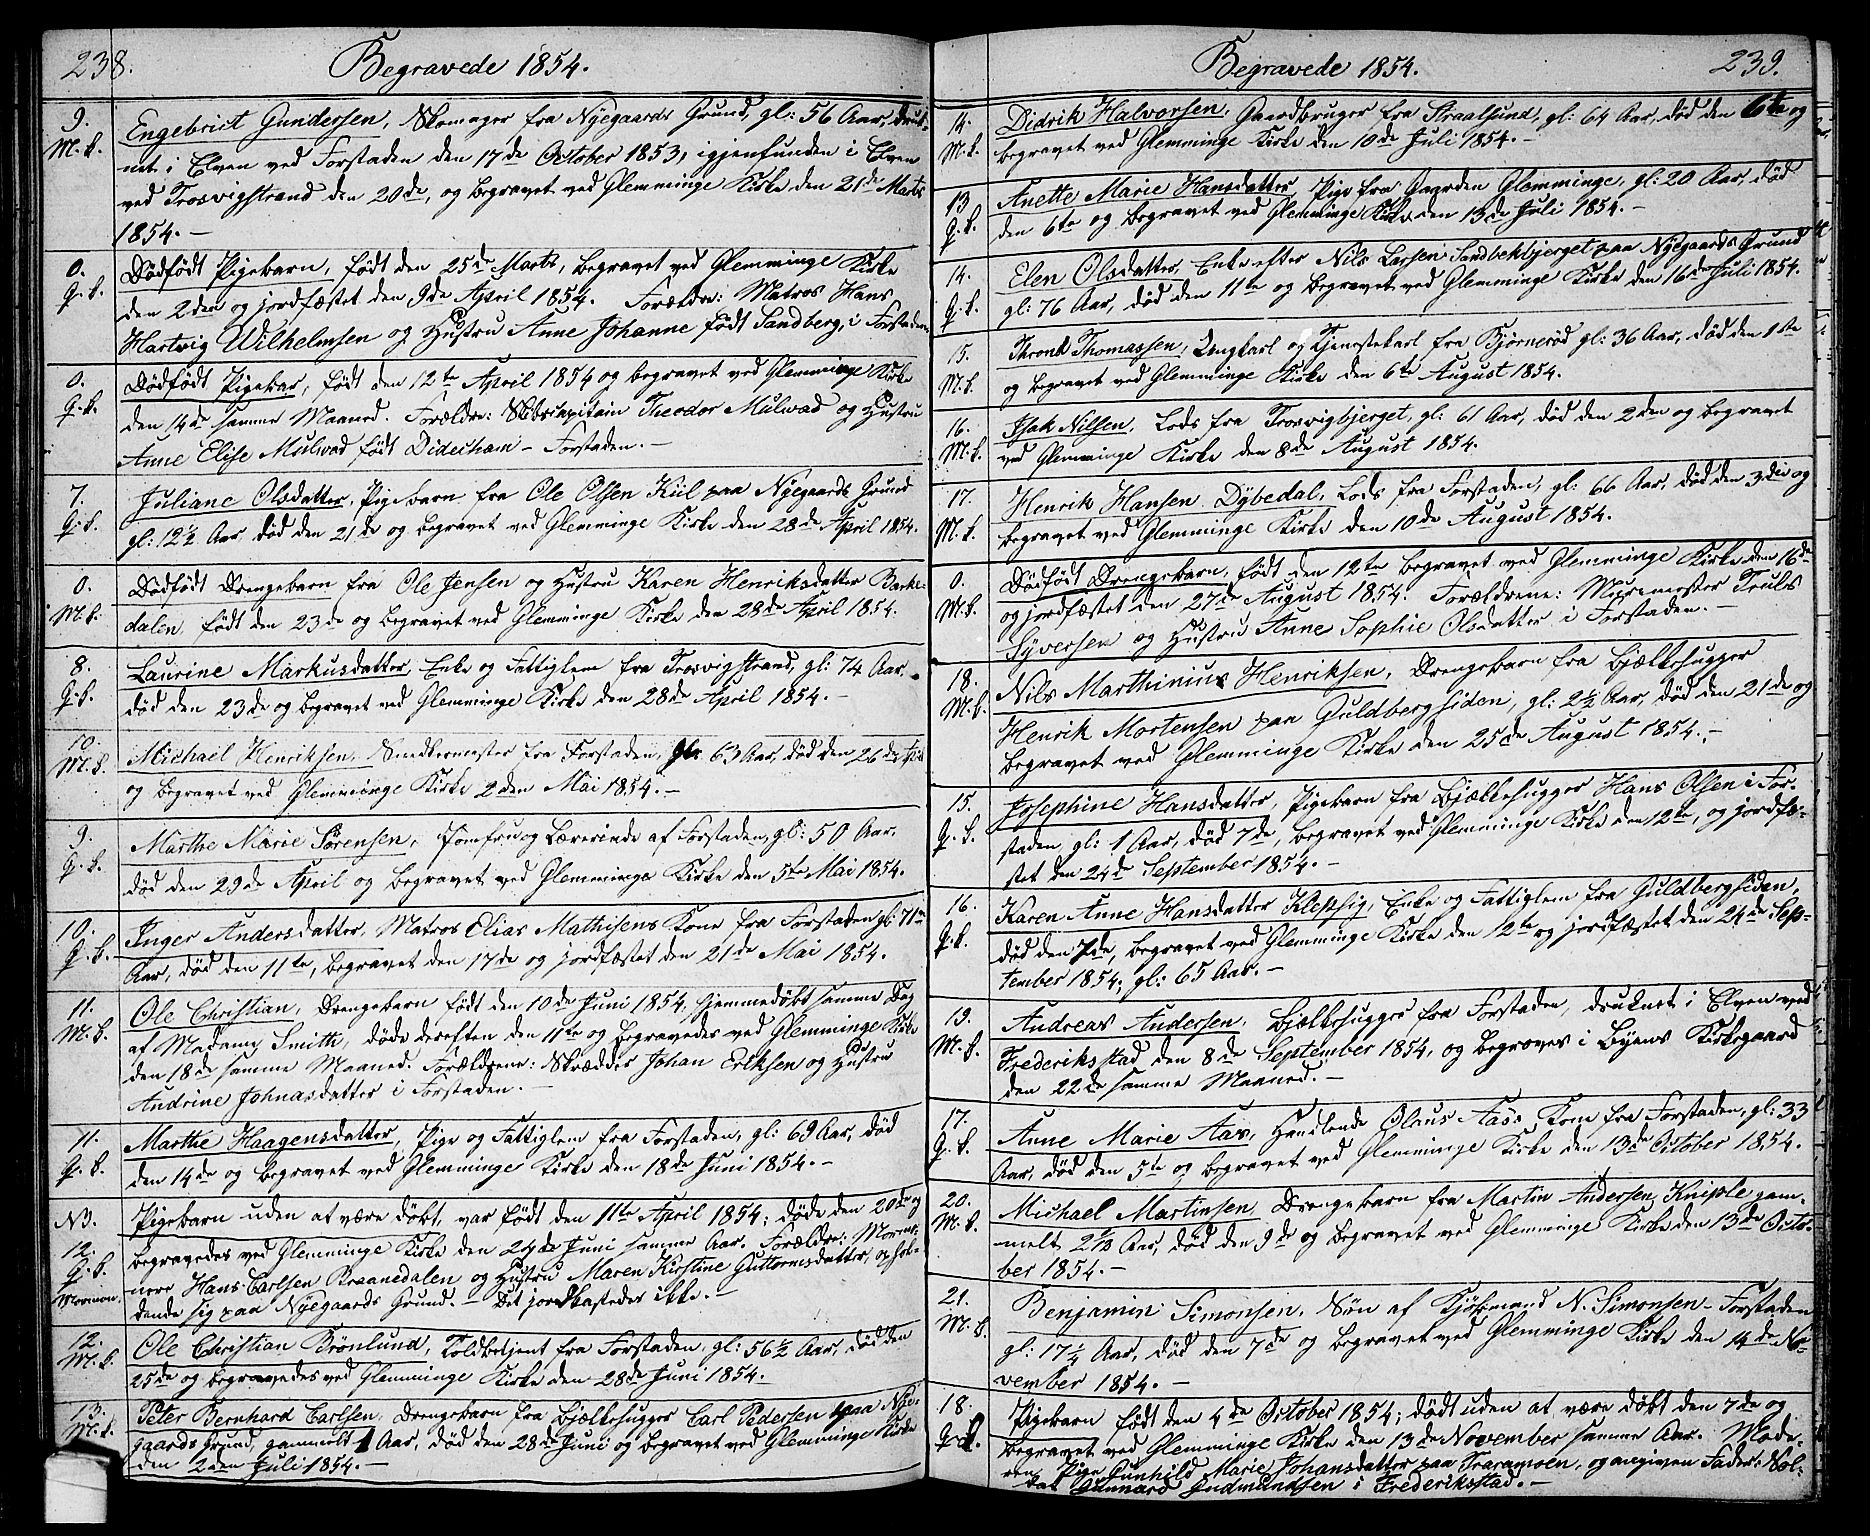 238.
Begravede 1854.
9. M. K. Engebrict Gundersen, Skomager fra Nyegaards Grund, gl: 56 Aar, druk-
net i Elven ved Forstaden den 17de October 1853, igjenfunden i Elven
ved Trosvigstrand den 20de, og begravet ved Glemminge Kirke den 21de Marts
1854. —
0. Q. K. Dødfødt Pigebarn, født den 25de Marts, begravet ved Glemminge Kirke
den 2den og jordfæstet den 9de April 1854. Forældre: Matros Hans
Hartvig Wilhelmsen og Hustru Anne Johanne født Sandberg, i Forstaden
0. Q. K. Dødfødt Pigebar, født den 12te April 1854 og begravet ved Glemminge Kirke
den 14de samme Maaned. Forældre: Skibscapitain Theodor Mulwad og Hustru
Anne Elise Mulwad født Diderham – Forstaden. —
7. Q. K. Juliane Olsdatter, Pigebarn fra Ole Olsen Kiil paa Nyegaards Grund
gl: 12½ Aar død den 21de og begravet ved Glemminge Kirke den 28de April 1854.
0. M. K. Dødfødt Drengebarn fra Ole Jensen og Hustru Karen Henriksdatter Bække-
dalen, født den 23de og begravet ved Glemminge Kirke, den 28de April 1854.
8. Q. K. Laurine Markusdatter, Enke og Fattiglem fra Trosvigstrand, gl: 74 Aar,
død den 23de og begravet ved Glemminge Kirke den 28de April 1854. —
10. M. K. Michael Henriksen, Snedkermester fra Forstaden, gl: 63 Aar, død den 26de April
og begravet ved Glemminge Kirke 2den Mai 1854. —
9. Q. K. Marthe Marie Sørensen, Jomfru og Lærerinde af Forstaden, gl: 50 Aar,
død den 29de April og begravet ved Glemminge Kirke den 5te Mai 1854.
10. Q. K. Inger Andersdatter, Matros Elias Mathisens Kone fra Forstaden gl: 71
Aar, død den 11te, begravet den 17de og jordfæstet den 21de Mai 1854.
11. M. K. Ole Christian, Drengebarn født den 10de Juni 1854, hjemmedøbt samme Dag
af Madam Smith, døde derefter den 11te og begravedes ved Glemminge Kirke
den 18de samme Maaned. Forældrene: Skrædder Johan Eriksen og Hustru
Andrine Johnasdatter i Forstaden. —
11. Q. K. Marthe Haagensdatter, Pige og Fattiglem fra Forstaden, gl: 69 Aar, død
den 14de og begravet ved Glemminge Kirke den 18de Juni 1854. —
N3. Pigebarn uden at være døbt, var født den 11te April 1854; døde den 20de og
12. Q. K. begravedes ved Glemminge Kirke den 24de Juni samme Aar. Forældre: Mormo-
Mormon. nere Hans Carlsen Braanedalen og Hustru Maren Kirstine Guttormsdatter, ophol-
dende sig paa Nyegaards Grund. – Det jordkastedes ikke. —
12. M. K. Ole Christian Brønlund, Toldbetjent fra Forstaden, gl: 56½ Aar, død den
25de og begravedes ved Glemminge Kirke den 28de Juni 1854. —
13. M. K. Peter Bernhard Carlsen, Drengebarn fra Bjælkehugger Carl Pedersen paa Nye-
gaards Grund, gammelt 1 Aar, død den 28de Juni og begravet ved Glemminge Kirke
den 2den Juli 1854. —
Begravede 1854.
239.
14. M. K. Didrik Halvorsen, Gaardbruger fra Straalsund, gl: 64 Aar, død den 6te og
begravet ved Glemminge Kirke den 10de Juli 1854. —
13 Q. K. Anette Marie Hansdatter, Pige fra Gaarden Glemminge, gl: 20 Aar, død
den 6te og begravet ved Glemminge Kirke den 13de Juli 1854. —
14. Q. K. Elen Olsdatter, Enke efter Nils Larsen Sandbekbjerget paa Nyegaards Grund
gl: 76 Aar, død den 11te og begravet ved Glemminge Kirke den 16de Juli 1854.
15. M. K. Thrond Thomassen, Ungkarl og Tjenestekarl fra Bjørnerød gl: 36 Aar, død den 1ste
og begravet ved Glemminge Kirke den 6te August 1854.
16. M. K. Isak Nilsen, Lods fra Trosvigbjerget, gl: 61 Aar, død den 2den og begravet
ved Glemminge Kirke den 8de August 1854.
17. M. K. Henrik Hansen Dybedal, Lods fra Forstaden, gl: 66 Aar, død den 3die og
begravet ved Glemminge Kirke den 10de August 1854.
0. M. K. Dødfødt Drengebarn, født den 12te begravet ved Glemminge Kirke den 16de
og jordfæstet den 27de August 1854. Forældrene: Muremester Truls
Syversen og Hustru Anne Sophie Olsdatter i Forstaden. —
18. M. K. Nils Marthinius Henriksen, Drengebarn fra Bjælkehugger
Henrik Mortensen paa Guldbergsiden, gl: 2½ Aar, død den 21de og
begravet ved Glemminge Kirke den 25de August 1854. —
15. Q. K. Josephine Hansdatter, Pigebarn fra Bjælkehugger Hans Olsen i For-
staden, gl: 1 Aar, død 7de, begravet ved Glemminge Kirke den 12te, og jordfæ-
stet den 24de September 1854. —
16. Q. K. Karen Anne Hansdatter Klepsig, Enke og Fattiglem fra Guldbergsiden,
død den 7de, begravet ved Glemminge Kirke den 12te og jordfæstet den 24de Sep-
tember 1854; gl: 65 Aar. —
19. M. K. Andreas Andersen, Bjælkehugger fra Forstaden, druknet i Elven ved
Frederikstad den 8de September 1854, og begroves i Byens Kirkegaard
den 22de samme Maaned. —
17. Q. K. Anne Marie Aas, Handlende Olaus Aass Kone fra Forstaden, gl: 33
Aar, død den 5te og begravet ved Glemminge Kirke den 13de October 1854.
20. M. K. Michael Martinsen, Drengebarn fra Martin Andersen Kniple gam-
melt Aar, død den 9de og begravet ved Glemminge Kirke den 13de Octo-
ber 1854. —
21. M. K. Benjamin Simonsen, Søn af Kjøbmand N. Simonsen – Forstaden
gl: 17¼ Aar, død den 7de og begravet ved Glemminge Kirke den 14de No-
vember 1854. —
18. Q. K. Pigebarn født den 4de October 1854; dødt uden at være døbt den 7de og
begravet ved Glemminge Kirke den 13de November samme Aar. Mode-
ren Pige Gunhild Marie Johansdatter paa Traramoen, og angiven Fader: Sol-
dat Gunnard Gudmundsen i Frederikstad. —